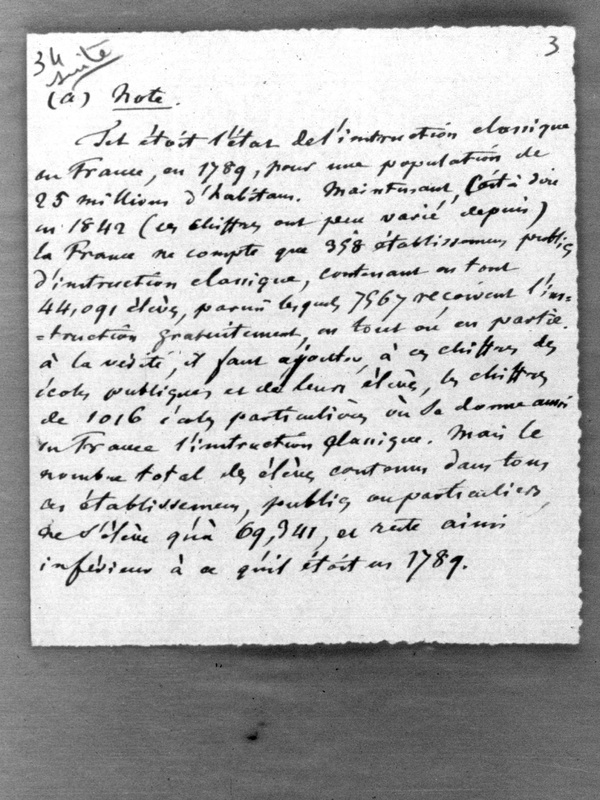 34 3
suite
(a) Note.
Tel étoit l'état de l'instruction classique
en France, en 1789, pour une population de
25 millions d'habitans. Maintenant, C'est à dire
en 1842 (ces chiffres ont peu varié depuis)
la France ne compte que 358 établissemens publics
d'instruction classique, contenant en tout
44,091 élèves, parmi lesquels 7567 reçoivent l'ins-
-truction gratuitement, en tout ou en partie.
à la vérité, il faut ajouter, à ces chiffres des
écoles publiques et de leurs élèves, les chiffres
de 1016 écoles particulières où se donne aussi
en France l'instruction classique. Mais le
nombre total des élèves contenus dans tous
ces établissemens, publics ou particuliers,
ne s'élève qu'à 69,341, et reste ainsi
inférieur à ce qu'il étoit en 1789.